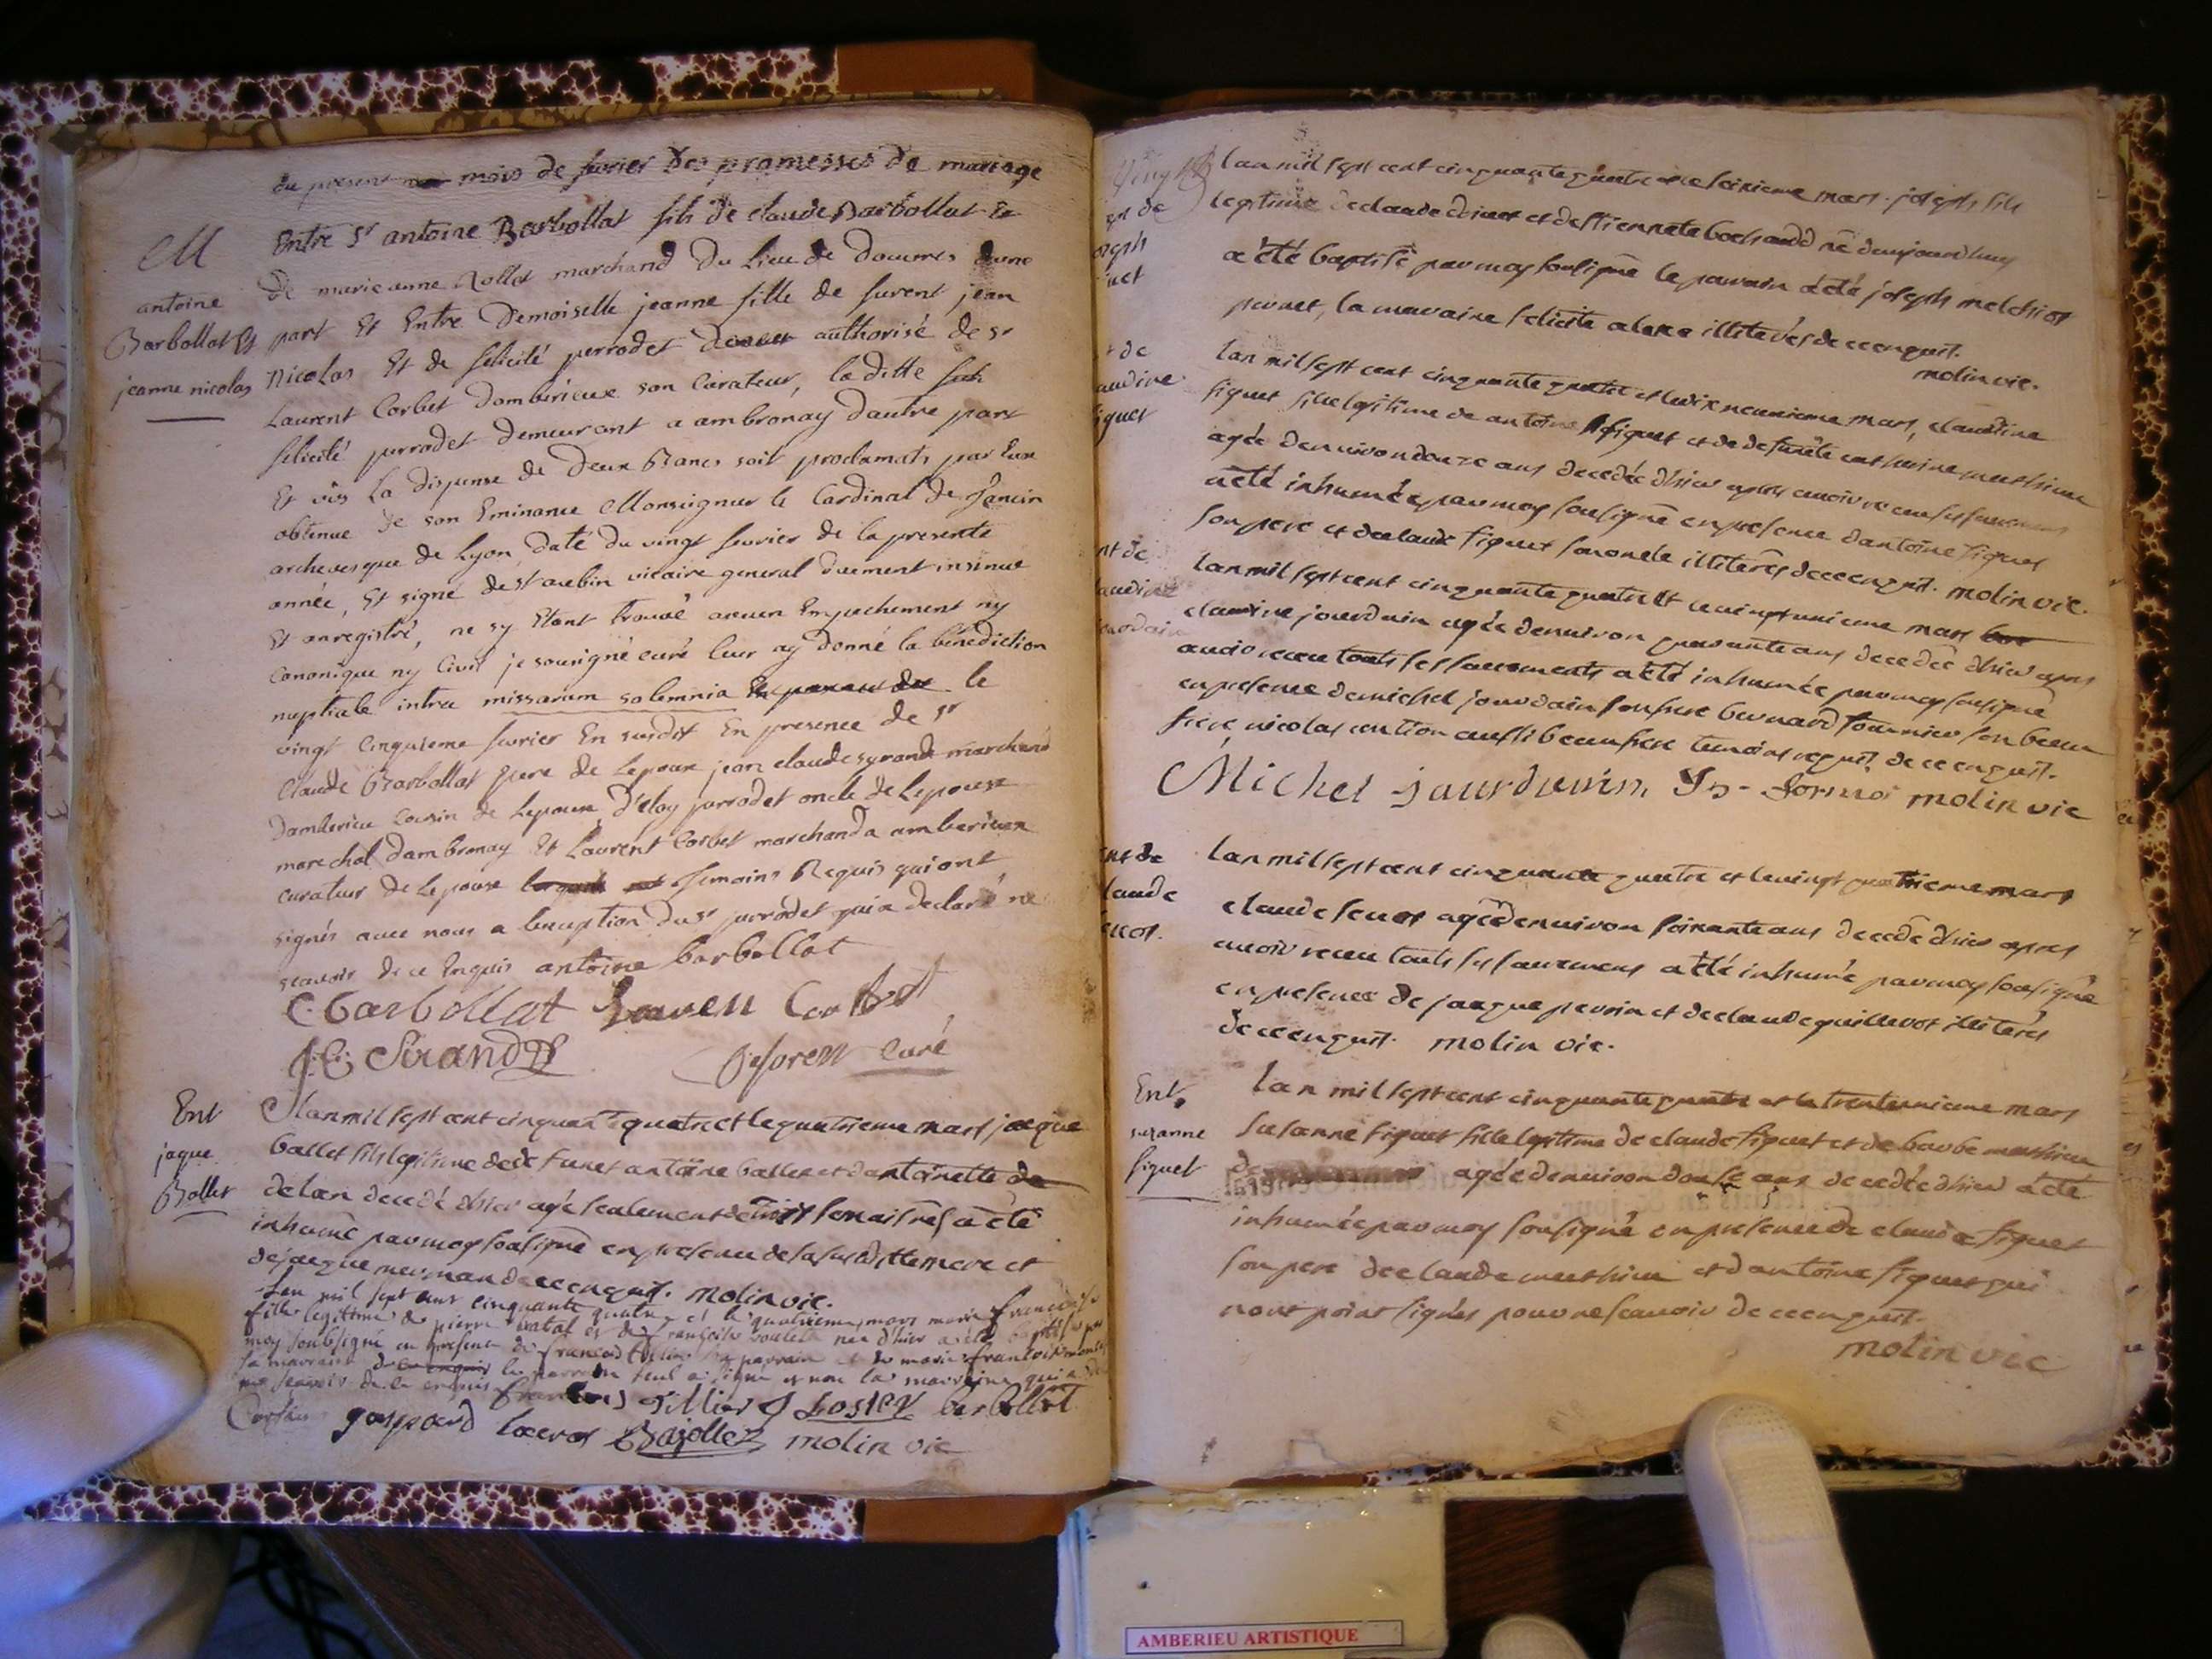 du present mois de fevrier des promesses de mariage
Entre Sr antoine Barbollat fils de claude Barbollat Et
De marie anne Rollet marchand Du Lieu de Douvres dune
part Et Entre Demoiselle jeanne fille de furent jean
Nicolas Et de felicité perrodet authorisé de sr
Laurent Corbet dambérieux son Curateur, la ditte
felicité perrodet demeurant a ambronay dautre part
Et vûs La dispense de Deux Bancs soit proclamats par Eux
obtenue de son Eminance Monseigneur le Cardinal de Tencin
archevesque de Lyon, daté du vingt fevrier de la presente
année, Et signé de st aubin vicaire general duement insinué
Et enregistré, ne sy Etant trouvé aucun Empechement ny
Canonique ny Civil je sousigné curé leur ay donné la bénédiction
nuptiale intra missarum solemnia le
vingt Cinquieme fevrier En susdit En presence de sr
Claude Barbollat pere de Lepoux jean claude sirand marchand
Damberieu Cousin de Lepoux, D'eloy perrodet oncle de Lepouse
marechal dambronay Et Laurent Corbet marchand a amberieux
curateur de Lepouse temoins Requis qui ont
signés avec nous a lexception du sr perrodet qui a declaré ne
scavoir de ce Enquis antoine barbollat
C. barbollat Lauren Corbet
J. C. Sirand curé
M
antoine
Barbollat Et
jeanne nicolas
Ent
jaque
Ballet
Lan mil sept cent cinquante quatre et le quatrieme mars jacque
ballet fils legitime de defunct antoine ballet et dantoinette de
delan decedé dhier agé sealement de trois semaines a été
inhumé par moy sousigné en presence de la susditte mere et
de jacque neyman de ce enquis. molin vic.
Lan mil sept cent cinquante quatre et le quatrieme mars marie francoise
fille legitime de pierre vatal et de francoise née d'hier a été baptisé par
moy soubsigné en presence de francois tillier parrain et de marie francoise
sa marraine le parrain seul a signé et non la marraine qui a
ne scavoir de ce enquis francois Tillier barbollat
gaspard molin vic
Lan mil sept cent cinquante quatre et le seixieme mars joseph fils
legitime de claude et destiennete bochand né daujourdhuy
a été baptisé par moy sousigné le parrain a été joseph melchior
la maraine felicite illiterés de ce enquis.
molin vic.
de
audine
iguet
Lan mil sept cent cinquante quatre et le dix neuvieme mars, claudine
fiquet fille legitime de antoine fiquet et de defuncte catherine
agée denviron douze ans decedée dhier apres avoir receu ses sacremens
a été inhumée par moy sousigné en presence dantoine fiquet
son pere et de claude fiquet son oncle illiterés de ce enquis. molin vic.
nt de
audine
Lan mil sept cent cinquante quatre et le vingt unieme mars
claudine jourdain agée denviron quarante ans decedée dhier apres
avoir receu touts ses sacrements a été inhumée par moy sousigné
en presence de michel jourdain son frere bernard fournier son beau
frere, nicolas aussi beau frere temoins requis de ce enquis.
Michel jourdain molin vic
nt de
laude
Lan mil sept cent cinquante quatre et le vingt quatrieme mars
claude agé denviron soixante ans decedé dhier apres
avoir receu touts ses sacremens a été inhumé par moy sousigné
en presence de jacque perrin et de claude guillerot illiterés
de ce enquis. molin vic.
Ent.
suzanne
fiquet
Lan mil sept cent cinquante quatre et le trente unieme mars
Susanne fiquet fille legitime de claude fiquet et de barbe
agée denviron douse ans decedée dhier a été
inhumée par moy sousigné en presence de claude fiquet
son pere de claude et dantoine fiquet qui
nont point signés pour ne scavoir de ce enquis.
molin vic
AMBERIEU ARTISTIQUE